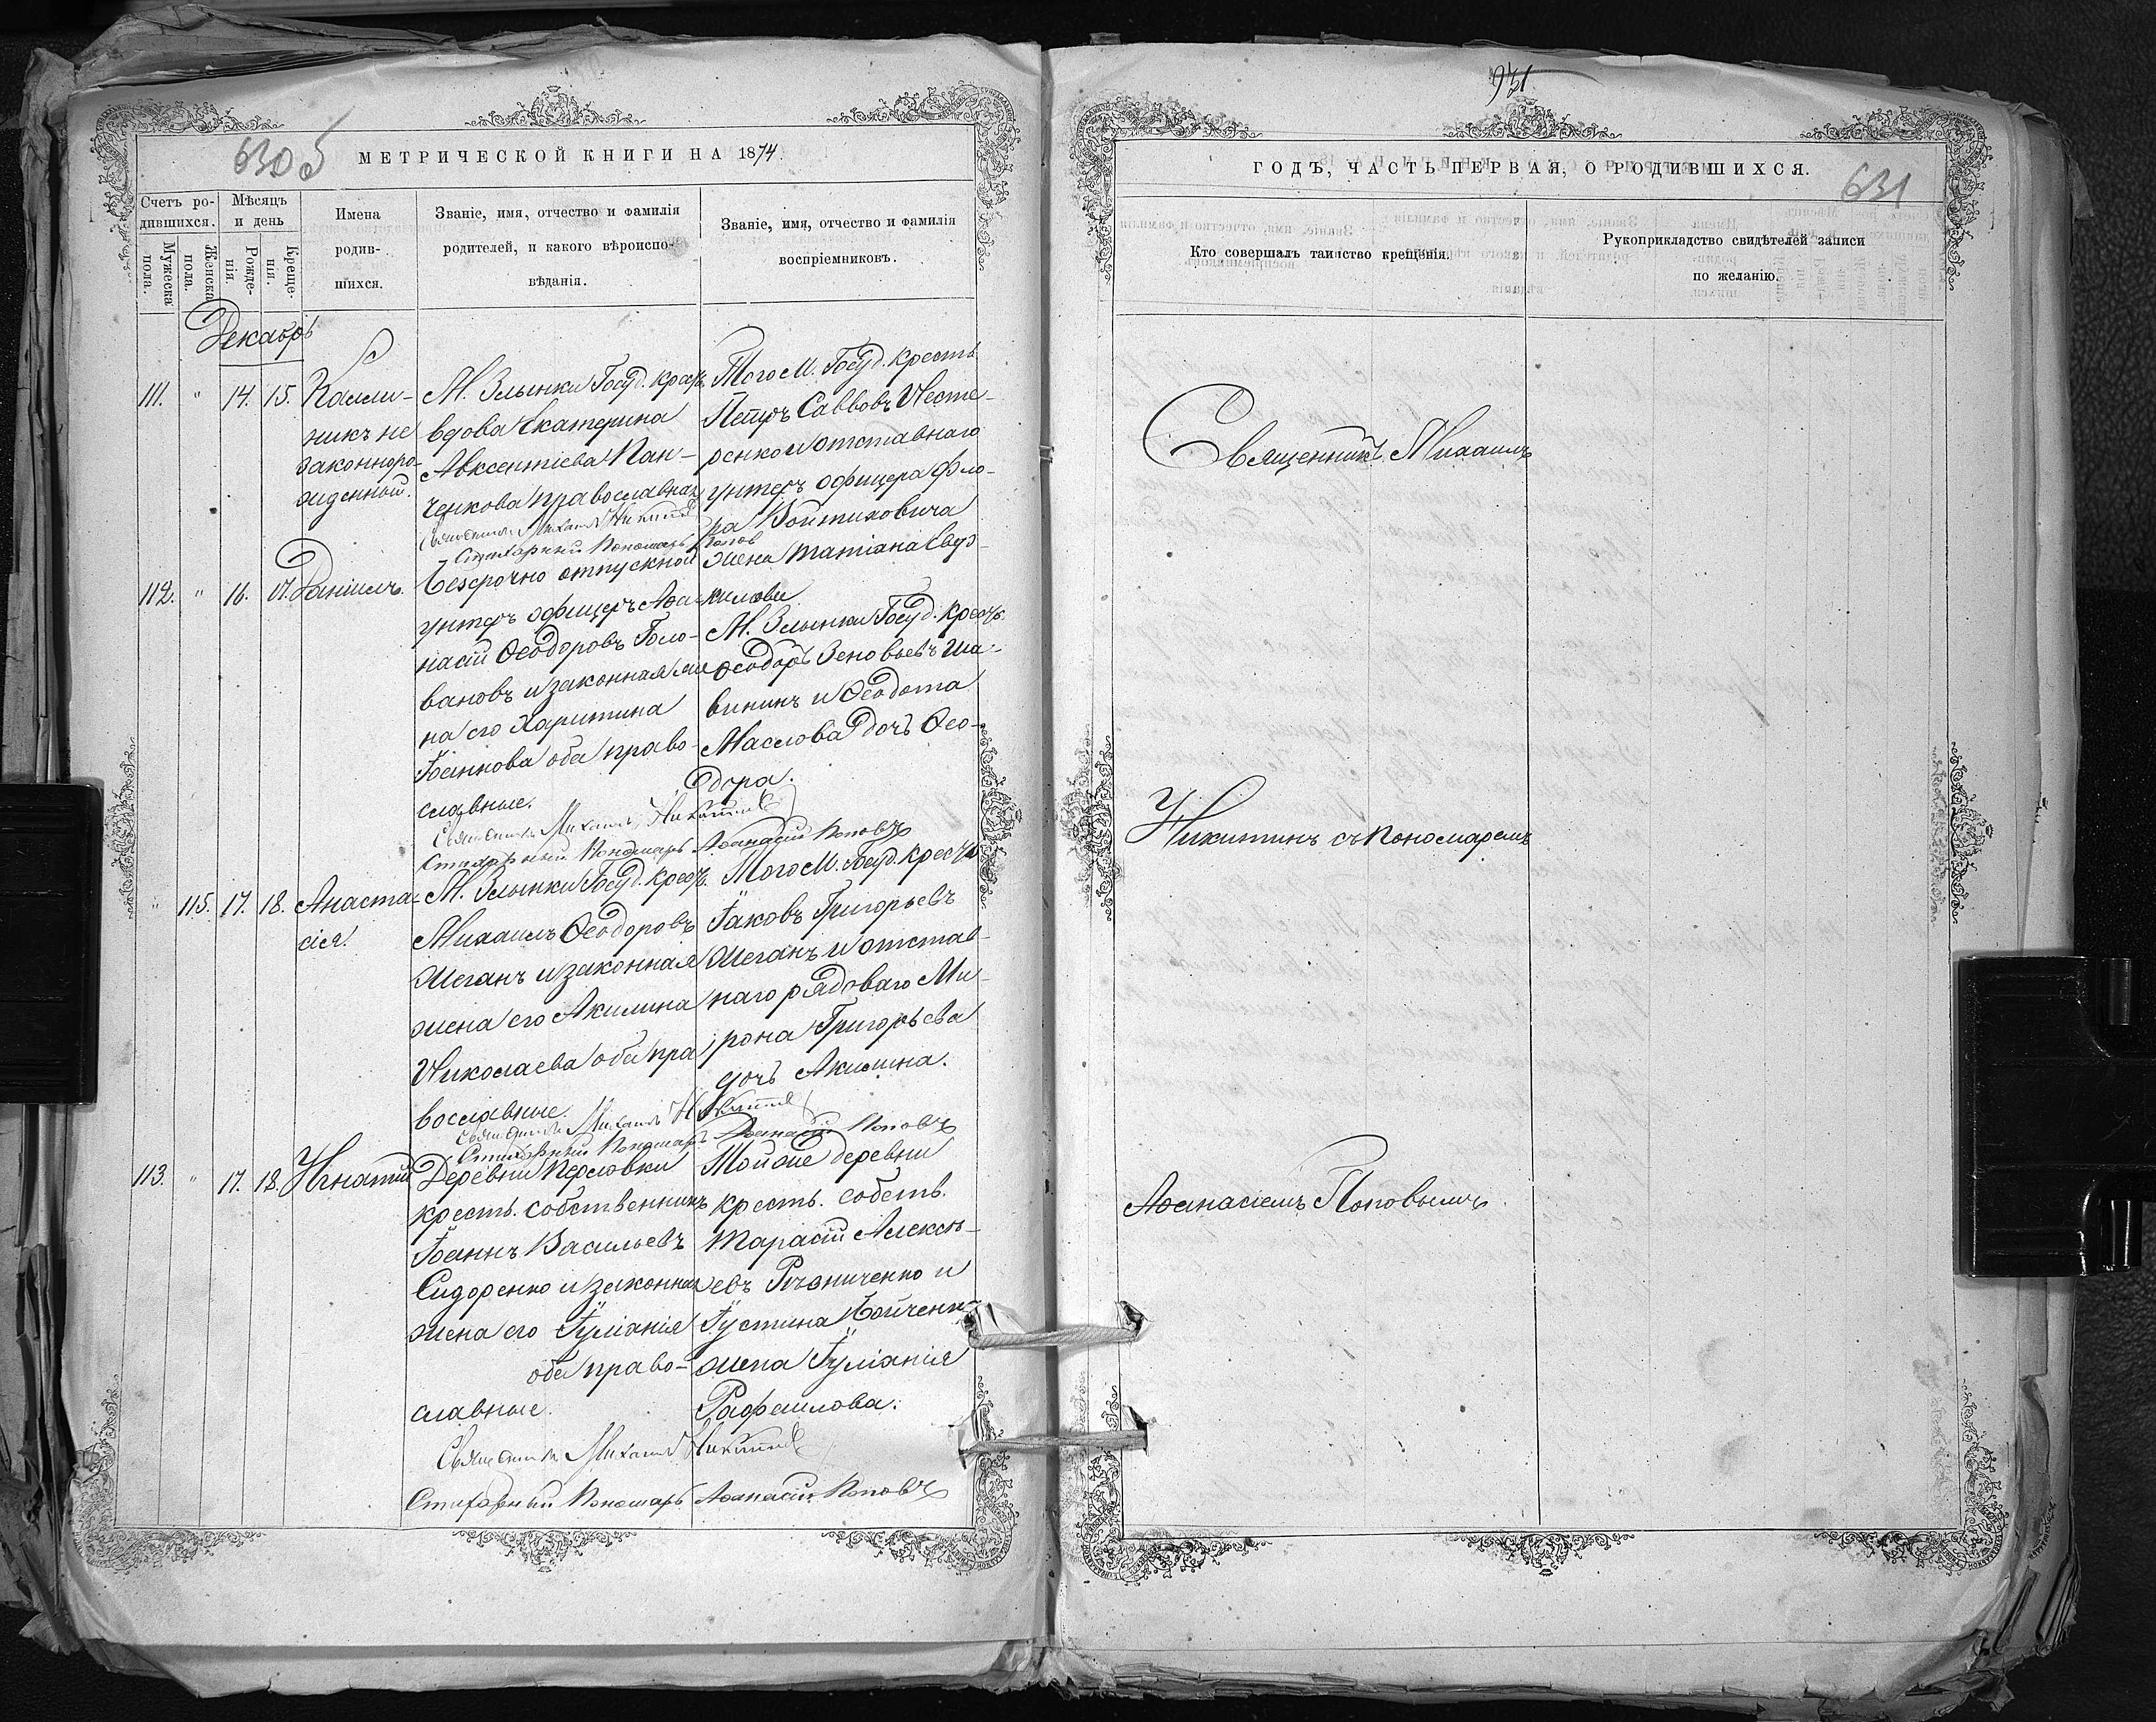 630б
МЕТРИЧЕСКОЙ КНИГИ НА 1874.
Счетъ ро-
дившихся.
Мужеска
пола.
Женска
пола.
Мѣсяцъ
и день
Рожде-
нія.
Креще-
нія.
Имена
родив-
шихся.
Званіе, имя, отчество и фамилія
родителей, и какого вѣроиспо-
вѣданія.
Званіе, имя, отчество и фамилія
воспріемниковъ.
Декабрь
111. " 14. 15.
Калли-
никъ не
законноро-
жденный.
М. Злынки Госуд. крест.
вдова Екатерина
Авксентіева Пан-
ченкова православная
Священникъ Михаилъ Никитинъ
Стихарный Пономарь Поповъ
Того М. Госуд. крест.
Петръ Саввовъ Несте-
ренко и отставнаго
унтеръ офицера Фло-
ра Войтиховича
жена Татіана
112. " 16. 17.
Даніилъ.
Безсрочно отпускной
унтеръ офицеръ Аѳа-
насій Ѳеодоровъ Голо-
вановъ и законная же-
на его Харитина
Іоаннова оба право-
славные.
Священникъ Михаилъ Никитинъ
Стихарный Пономарь Аѳанасій Поповъ
М. Злынки Госуд. крест.
Ѳеодоръ Зеновьевъ Ша-
винъ и Ѳеодота
Маслова дочь Ѳео-
дора.
" 115. 17. 18.
Анаста-
сія.
М. Злынки Госуд. крест.
Михаилъ Ѳеодоровъ
Шеганъ и законная
жена его Акилина
Николаева оба пра-
вославные.
Священникъ Михаилъ Никитинъ
Стихарный Пономарь Аѳанасій Поповъ
Того М. Госуд. крест.
Іаковъ Григорьевъ
Шеганъ и отстав-
наго рядоваго Ми-
рона Григорьева
дочь Акилина.
113. " 17. 18.
Игнатій
Деревни
кресть. собственникъ
Іоаннъ Васильевъ
Сидоренко и законная
жена его Іуліанія
оба право-
славные.
Священникъ Михаилъ Никитинъ
Стихарный Пономарь Аѳанасій Поповъ
Той же деревни
кресть. собств.
Тарасій Алексѣ-
евъ и
Іустина Бойченко
жена Іуліанія
Рафаилова.
931
ГОДЪ, ЧАСТЬ ПЕРВАЯ, О РОДИВШИХСЯ.
631
Кто совершалъ таинство крещенія.
Рукоприкладство свидѣтелей записи
по желанію.
Священникъ Михаилъ
Никитинъ съ Пономаремъ
Аѳанасіемъ Поповымъ.